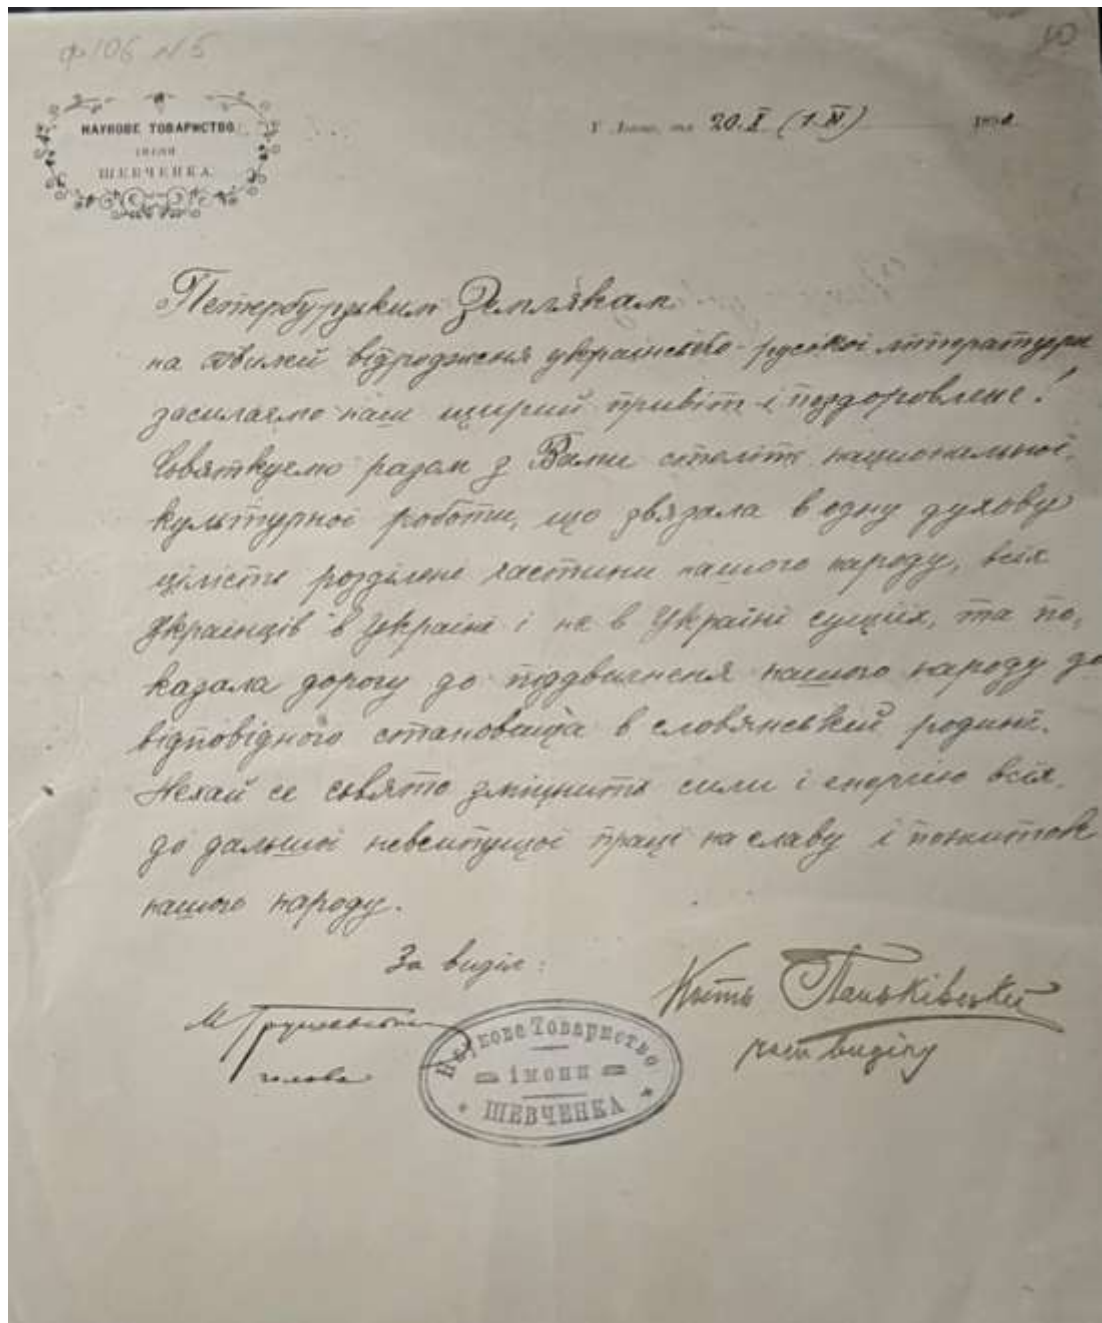 ф 106 № 5
НАУКОВЕ ТОВАРИСТВО
імени
ШЕВЧЕНКА.
У Львові, дня 20.X (1.XI) 1898
Петербурським Землякам
на ювилей відродженя українсько-руської літератури
засилаємо наш щирий привіт і поздоровленє!
Сьвяткуємо разом з Вами столітє національної
культурної роботи, що звязала в одну духову
цілість розділені частини нашого народу, всїх
Українцїв в Українї і не в Українї сущих, та по-
казала дорогу до піддвигненя нашого народу до
відповідного становища в словянській родині.
Нехай се сьвято зміцнить сили і енергію всїх
до дальшої невсипущої працї на славу і пожиток
нашого народу.
За видїл:
М Грушевський
голова
Кость Паньківський
член видїлу
Наукове Товариство
імени
ШЕВЧЕНКА